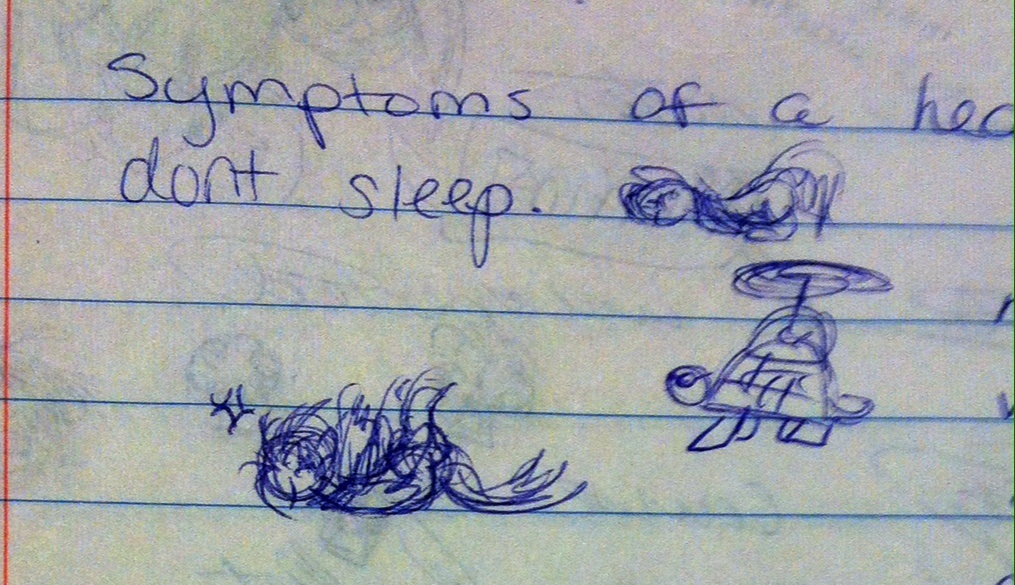 Symptoms of a
dont sleep.